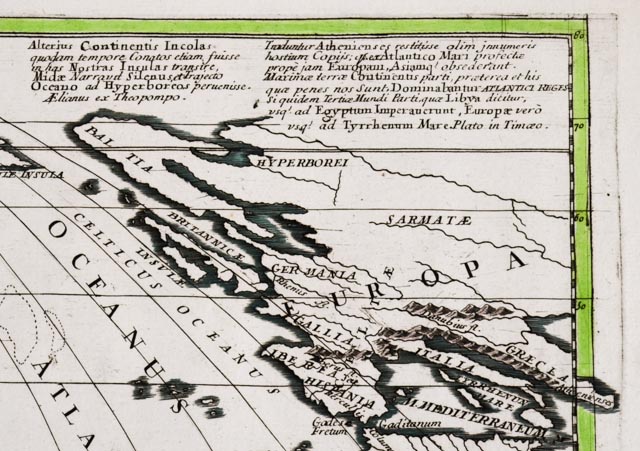 Alterius Continentis Incolas
quodam tempore Conatos etiam fuisse
in has Nostras Insulas transire,
Midæ Narravit Silenus, et trajecto
Oceano ad Hyperboreos pervenisse.
Ælianus ex Theopompo.
Traduntur Athenienses restitisse olim innumeris
hostium Copijs, quæ ex Atlantico Mari profectæ
propè jam Europam, Asiamq. obsederant.
Maximæ terræ Continentis parti, præterea et his
quæ penes nos Sunt, Dominabantur ATLANTICI REGES
Si quidem Tertiæ Mundi Parti, quæ Libya dicitur,
usq. ad Egyptum Imperaverunt, Europæ verò
usq. ad Tyrrhenum Mare. Plato in Timæo.
80
70
60
50
BALTIA
INSULA
HYPERBOREI
SARMATÆ
BRITANNICÆ
INSULÆ
CELTICUS OCEANUS
OCEANUS
ATLA
GERMANIA
Rhenus fl.
EUROPA
Danubius fl.
GALLIA
IBE
HISPANIA
ITALIA
GRECIA
Athenienses
TYRRHENUM
MARE
M. MEDITERRANEUM
Gades
Fretum
Gaditanum
Colum